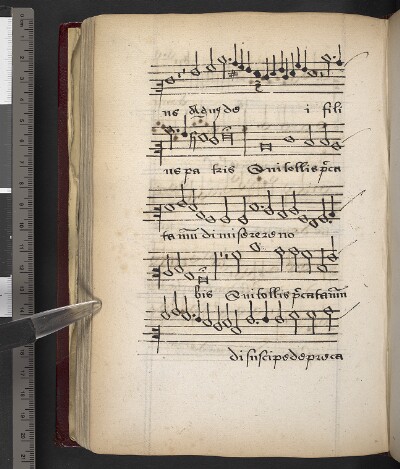 us Agnus de i fili
us pa tris Qui tollis pcca
ta mũ di mi serere no
bis Qui tollis pcca ta mũ
di suscipe depreca